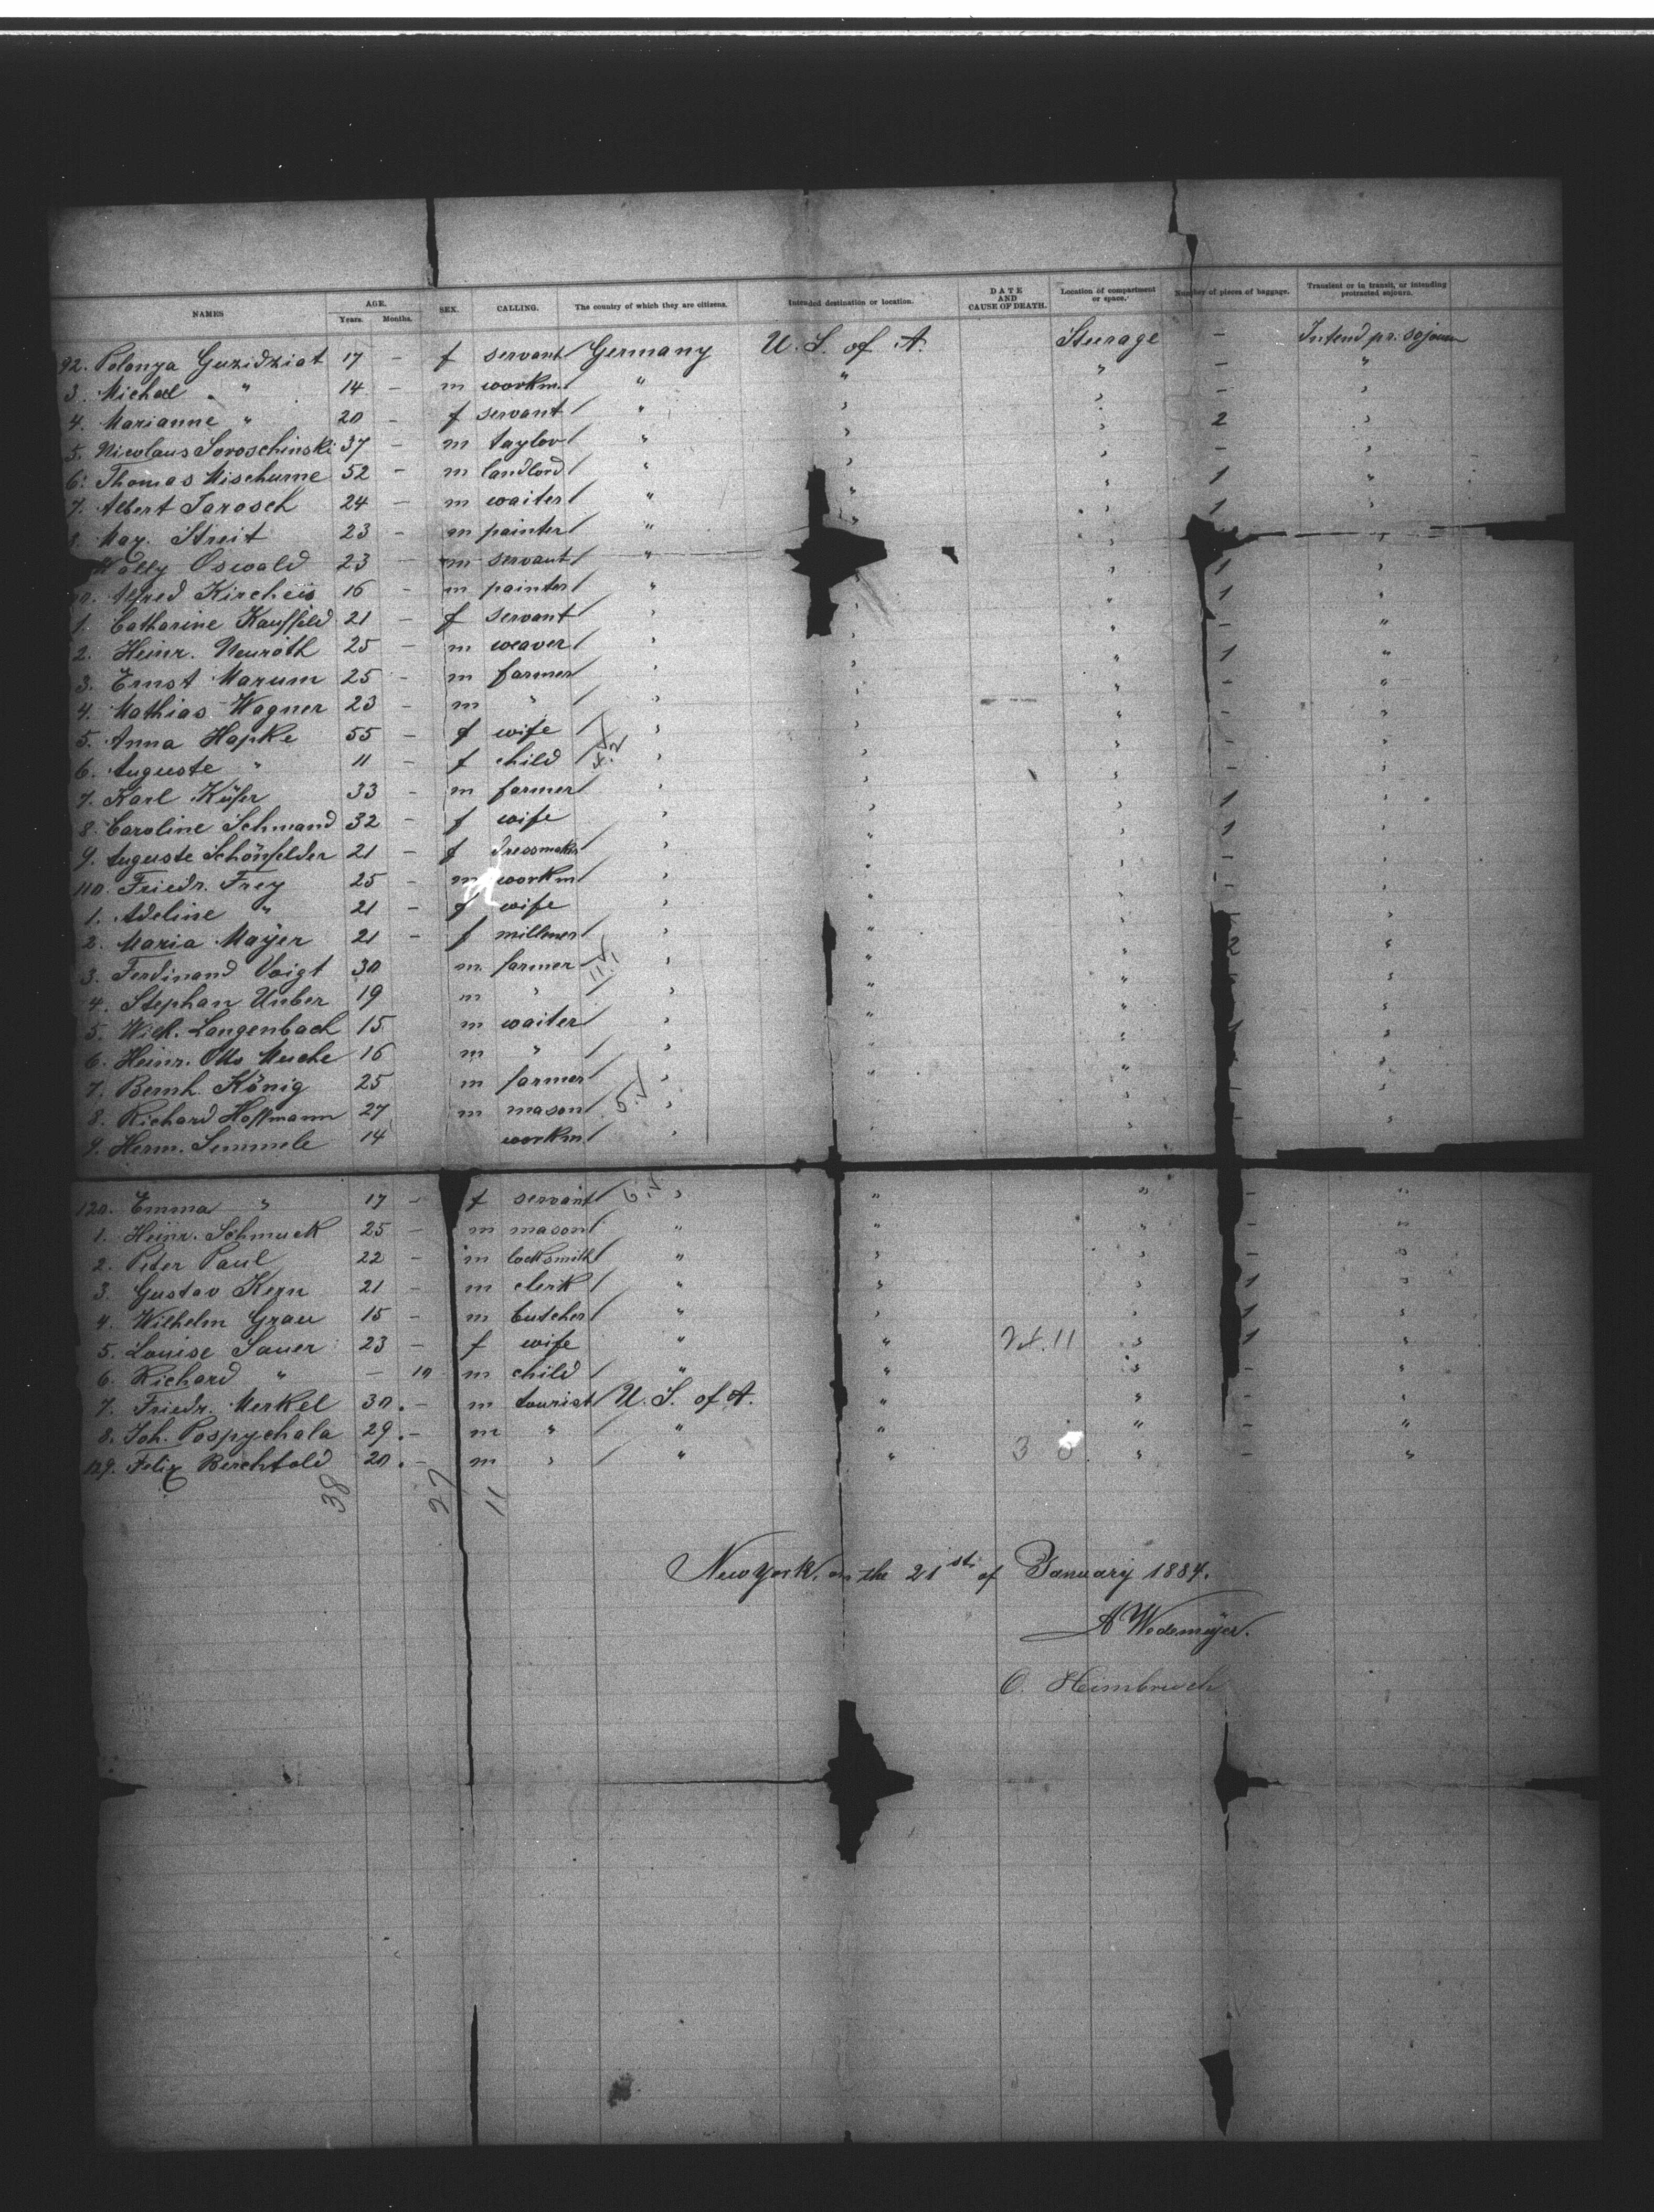 NAMES AGE. Years. Months. SEX. CALLING. The country of which they are citizens. Intended destination or location. DATE AND CAUSE OF DEATH. Location of compartment or space. Number of pieces of baggage. Transient or in transit, or intending protracted sojourn.
92. Polonya Guzidziat 17 - f servant Germany U. S. of A. Steerage - Intend pr. sojourn
3. Michael " 14 - m workm. " " " - "
4. Marianne " 20 - f servant " " " - "
5. Nicolaus Soroschinski 37 - m taylor " " " 2 "
6. Thomas Mischurne 52 - m landlord " " " - "
7. Albert Jarosch 24 - m waiter " " " 1 "
8. Max. Streit 23 - m painter " " " 1 "
Wally Oswald 23 - m servant " " "
Alfred Kircheis 16 - m painter " " 1 "
1. Catharine Kauffeld 21 - f servant " " " 1 "
2. Heinr. Neuroth 25 - m weaver " " " - "
3. Ernst Marum 25 - m farmer " " " 1 "
4. Mathias Wagner 23 - m " " " " - "
5. Anna Hapke 55 - f wife " " " - "
6. Auguste " 11 - f child " " " - "
7. Karl Küfer 33 - m farmer " " " - "
8. Caroline Schmand 32 - f wife " " " 1 "
9. Auguste Schönfelder 21 - f dressmaker " " " 1 "
110. Friedr. Frey 25 - m workm " " " - "
1. Adeline " 21 - f wife " " " - "
2. Maria Mayer 21 - f milliner " " " "
3. Ferdinand Voigt 30 m. farmer " " " 2 "
4. Stephan Unber 19 m " " " " "
5. Wilh. Langenbach 15 m waiter " " " "
6. Heinr. Otto Muche 16 m " " " "
7. Bernh. König 25 m farmer " " " "
8. Richard Hoffmann 27 m mason " " " "
9. Herm. Semmele 14 workm " " " - "
120. Emma " 17 - f servant " " " - "
1. Heinr. Schmuck 25 - m mason " " " - "
2. Peter Paul 22 - m locksmith " " " - "
3. Gustav Kern 21 - m clerk " " " 1 "
4. Wilhelm Grau 15 - m butcher " " " 1 "
5. Louise Sauer 23 - f wife " " " 1 "
6. Richard " - 10 m child " " " - "
7. Friedr. Merkel 30. - m tourist U. S. of A. " " - "
8. Joh. Pospychala 29. - m " " " " - "
129. Felix Berchtold 20. - m " " " " - "
38 27 11
New York, on the 21st of January 1884.
A Wedemeyer.
O. Heimbruch